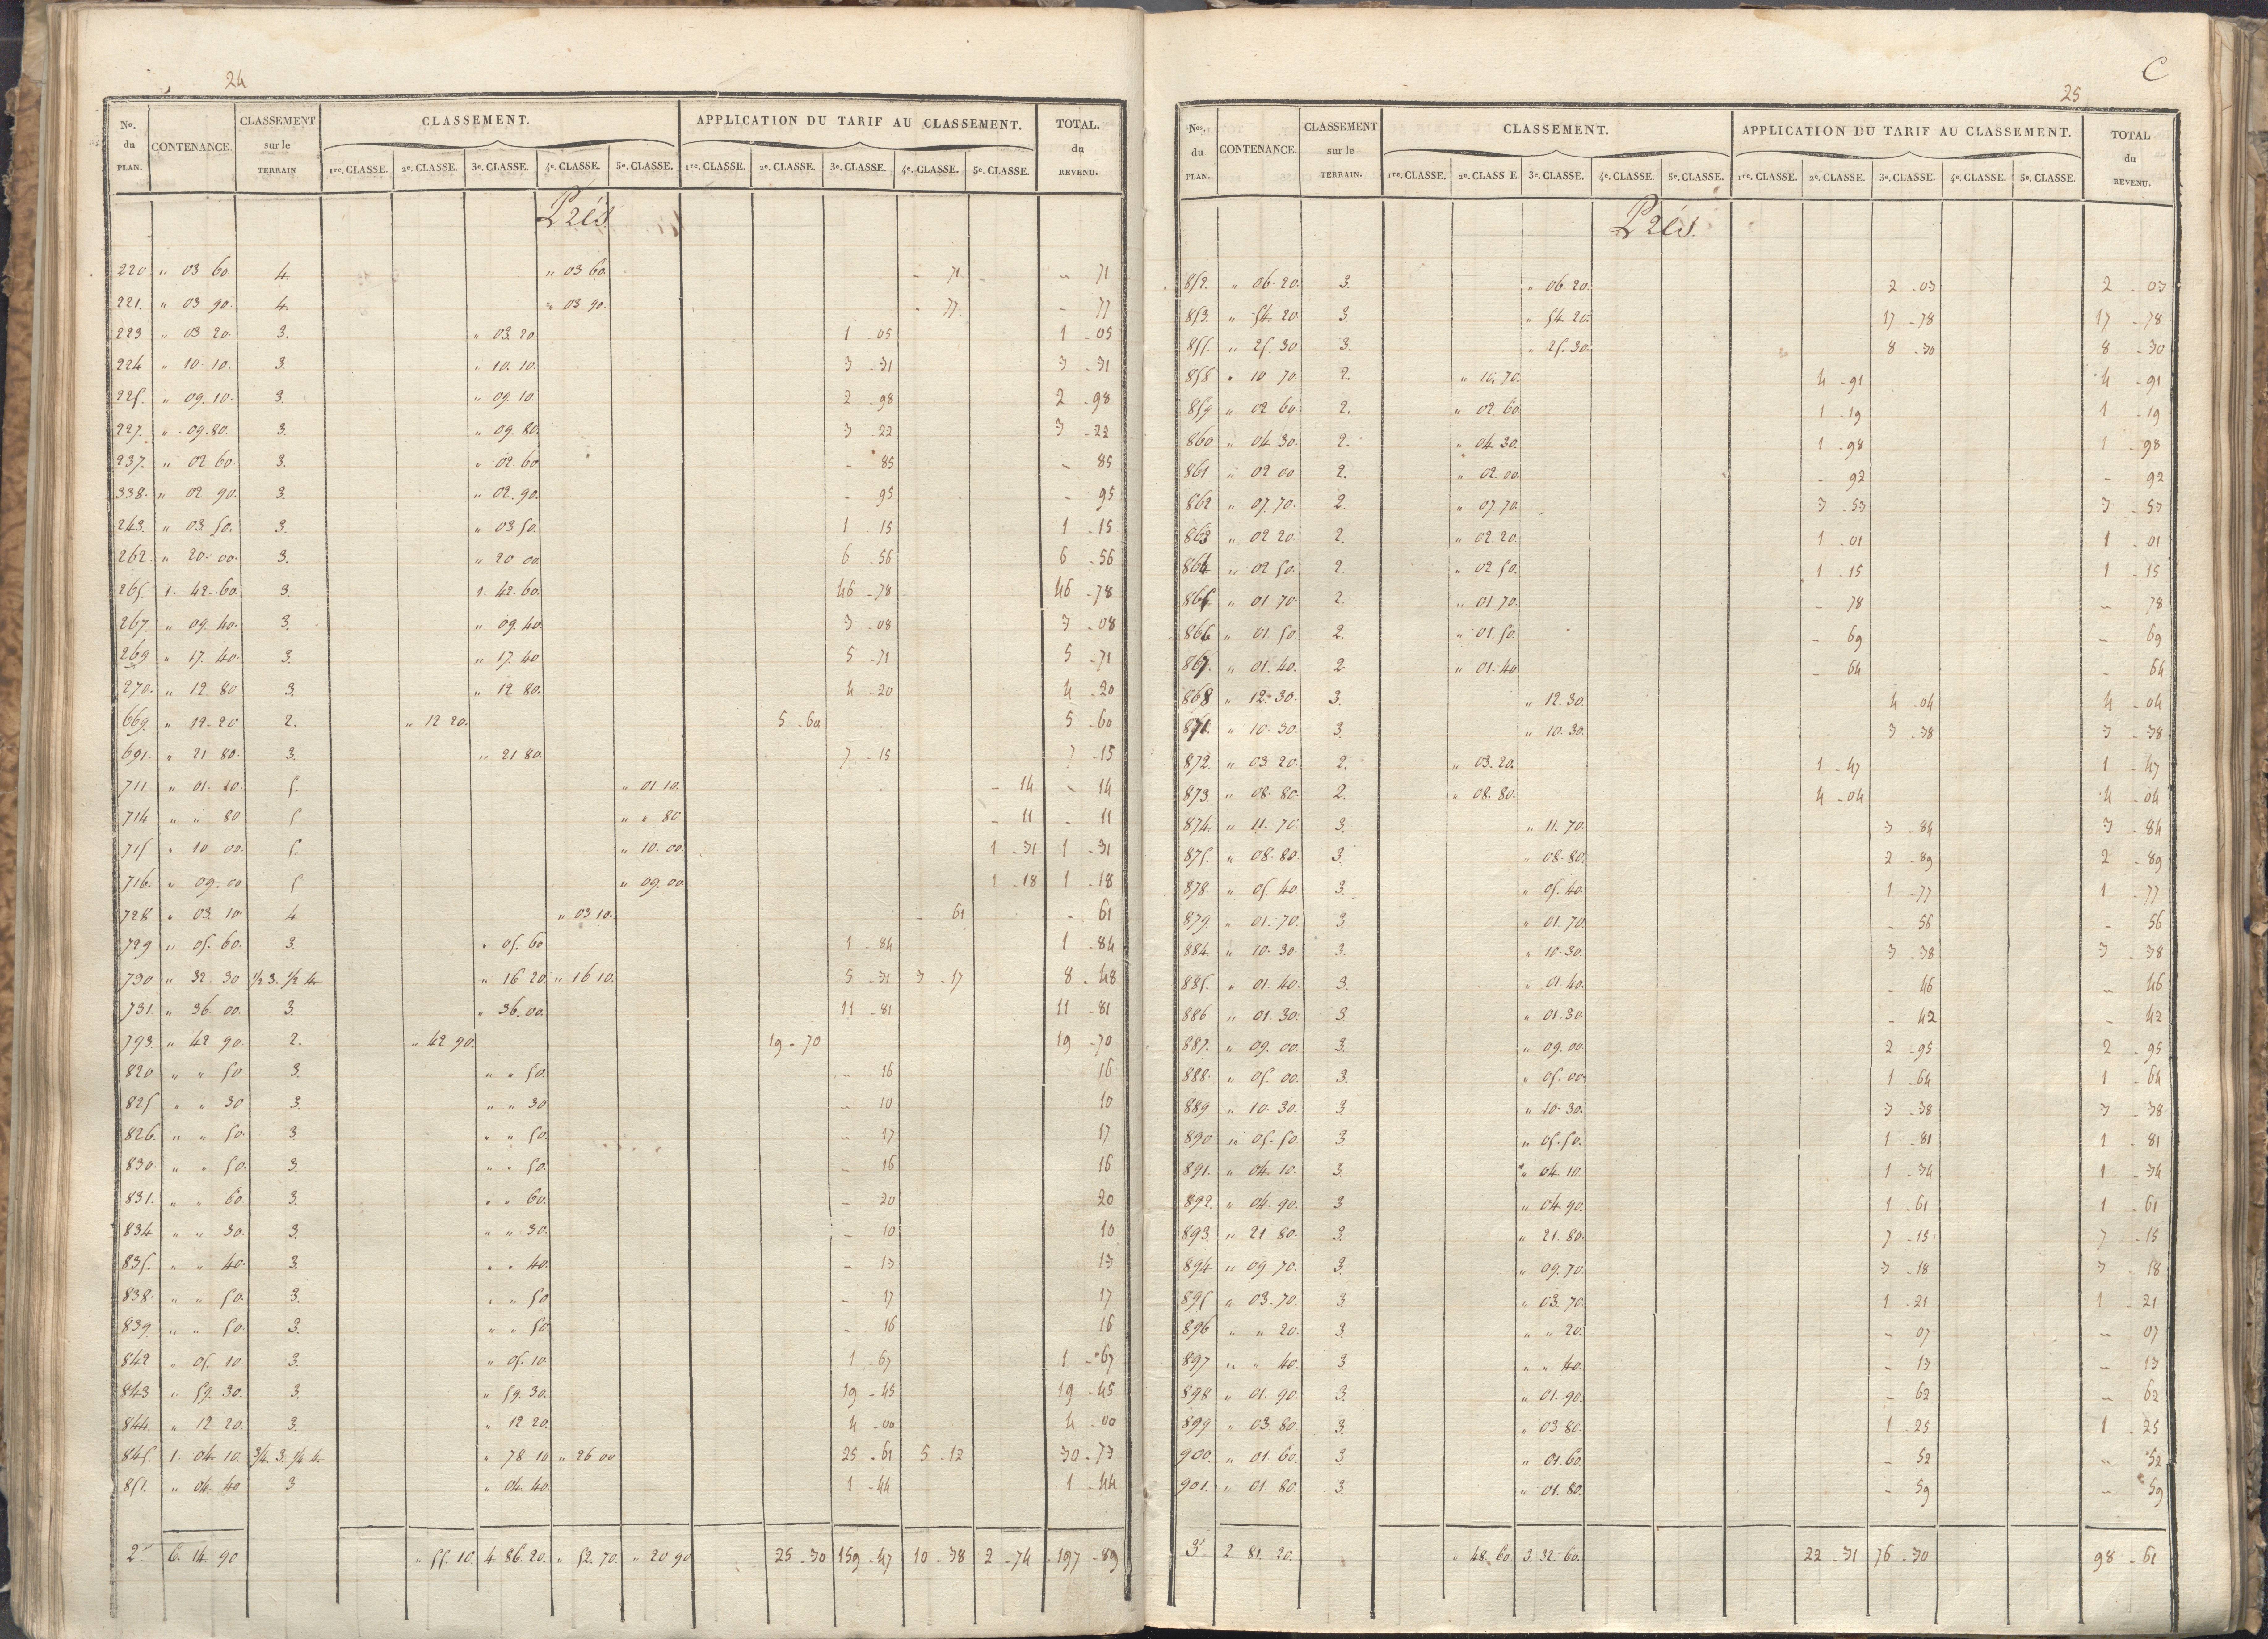 24
No. du PLAN. CONTENANCE. CLASSEMENT sur le TERRAIN CLASSEMENT. APPLICATION DU TARIF AU CLASSEMENT. TOTAL. du REVENU.
1re. CLASSE. 2e. CLASSE. 3e. CLASSE. 4e. CLASSE. 5e. CLASSE. 1re. CLASSE. 2e. CLASSE. 3e. CLASSE. 4e. CLASSE. 5e. CLASSE.
Prés
220 " 03 60 4. " 03 60. - 71 - 71
221. " 03 90. 4. " 03 90. - 77 - 77
223 " 03 20. 3. " 03. 20. 1 - 05 1 - 05
224 " 10. 10. 3. " 10. 10. 3 - 31 3 - 31
225. " 09. 10. 3. " 09. 10. 2 - 98 2 - 98
227. " 09. 80. 3. " 09. 80. 3 - 22 3 - 22
237. " 02 60. 3. " 02 60. - 85 - 85
338. " 02 90. 3. " 02. 90. - 95 - 95
243. " 03. 50. 3. " 03. 50. 1 - 15 1 - 15
262. " 20. 00. 3. " 20 00. 6 - 56 6 - 56
265. 1. 42. 60. 3. 1. 42. 60. 46 - 78 46 - 78
267. " 09. 40. 3. " 09. 40. 3 - 08 3 - 08
269 " 17. 40. 3. " 17. 40 5 - 71 5 - 71
270. " 12 80 3. " 12 80. 4 - 20 4 - 20
669. " 12. 20 2. " 12 20. 5 - 60 5 - 60
691. " 21 80. 3. " 21 80. 7 - 15 7 - 15
711 " 01. 10. 5. " 01 10. - 14 - 14
714 " " 80 5 " " 80 - 11 - 11
715 " 10 00. 5. " 10. 00 1 - 31 1 - 31
716. " 09. 00 5 " 09. 00 1 - 18 1 - 18
728 " 03. 10. 4 " 03 10. - 61 - 61
729 " 05. 60. 3. " 05. 60 1 - 84 1 - 84
730 " 32. 30 1/2 3. 1/2 4. " 16 20. " 16 10. 5 - 31 3 - 17 8 - 48
731. " 36. 00. 3. " 36. 00. 11 - 81 11 - 81
793. " 42 90. 2. " 42 90. 19 - 70 19 - 70
820 " " 50 3. " " 50. - 16 16
825 " " 30 3. " " 30 - 10 10
826. " " 50. 3 " " 50. - 17 17
830. " " 50. 3. " " 50. - 16 16
831. " " 60. 3. " " 60. - 20 20
834 " " 30. 3. " " 30. - 10 10
835. " " 40. 3. " " 40. - 13 13
838. " " 50. 3. " " 50 - 17 17
839. " " 50. 3. " " 50 - 16 16
842 " 05. 10 3. " 05. 10. 1 - 67 1 - 67
843 " 59. 30. 3. " 59. 30. 19 - 45 19 - 45
844. " 12 20. 3. " 12 20. 4 - 00 4 - 00
845. 1. 04. 10. 3/4. 3. 1/4 4. " 78 10 " 26 00 25 - 61 5 - 12 30 - 73
851. " 04. 40 3 " 04. 40. 1 - 44 1 - 44
2e 6. 14. 90 " 55. 10. 4. 86. 20. " 52. 70. " 20 90 25 - 30 159 - 47 10 - 38 2 - 74 197 - 89
C
25
Nos. du PLAN. CONTENANCE. CLASSEMENT sur le TERRAIN. CLASSEMENT. APPLICATION DU TARIF AU CLASSEMENT. TOTAL du REVENU.
1re. CLASSE. 2e. CLASS E. 3e. CLASSE. 4e. CLASSE. 5e. CLASSE. 1re. CLASSE. 2e. CLASSE. 3e. CLASSE. 4e. CLASSE. 5e. CLASSE.
Prés.
852. " 06. 20. 3. " 06. 20. 2 - 03 2 - 03
853. " 54. 20. 3. " 54. 20. 17 - 78 17 - 78
855. " 25. 30 3. " 25. 30. 8 - 30 8 - 30
858 " 10 70. 2. " 10. 70. 4 - 91 4 - 91
859 " 02 60. 2. " 02. 60. 1 - 19 1 - 19
860 " 04. 30. 2. " 04. 30. 1 - 98 1 - 98
861 " 02 00 2. " 02. 00. - 92 - 92
862 " 07. 70. 2. " 07. 70. 3 - 53 3 - 53
863 " 02 20. 2. " 02. 20. 1 - 01 1 - 01
864 " 02 50. 2. " 02 50. 1 - 15 1 - 15
865 " 01 70. 2. " 01 70. - 78 - 78
866 " 01. 50. 2. " 01. 50. - 69 - 69
867. " 01. 40. 2 " 01. 40 - 64 - 64
868 " 12. 30. 3. " 12. 30. 4 - 04 4 - 04
871. " 10. 30. 3. " 10. 30. 3 - 38 3 - 38
872. " 03. 20. 2. " 03. 20. 1 - 47 1 - 47
873. " 08. 80. 2. " 08. 80. 4 - 04 4 - 04
874. " 11. 70. 3. " 11. 70. 3 - 84 3 - 84
875. " 08. 80. 3. " 08. 80. 2 - 89 2 - 89
878. " 05. 40. 3. " 05. 40. 1 - 77 1 - 77
879. " 01. 70. 3. " 01. 70. - 56 - 56
884. " 10. 30. 3. " 10. 30. 3 - 38 3 - 38
885. " 01. 40. 3. " 01. 40. - 46 - 46
886 " 01. 30. 3. " 01. 30 - 42 - 42
887. " 09. 00. 3. " 09. 00. 2 - 95 2 - 95
888. " 05. 00. 3. " 05. 00. 1 - 64 1 - 64
889 " 10. 30. 3 " 10. 30. 3 - 38 3 - 38
890 " 05. 50. 3. " 05. 50. 1 - 81 1 - 81
891. " 04. 10. 3. " 04. 10. 1 - 34 1 - 34
892. " 04. 90. 3. " 04. 90. 1 - 61 1 - 61
893. " 21 80. 3. " 21. 80. 7 - 15 7 - 15
894 " 09. 70. 3. " 09. 70. 3 - 18 3 - 18
895 " 03. 70. 3. " 03. 70. 1 - 21 1 - 21
896 " " 20. 3. " " 20. - 07 - 07
897 " " 40. 3 " " 40. - 13 - 13
898 " 01. 90. 3. " 01. 90. - 62 - 62
899 " 03. 80. 3. " 03 80. 1 - 25 1 - 25
900. " 01. 60. 3. " 01. 60. - 52 - 52
901. " 01 80. 3. " 01. 80. - 59 - 59
3e 2. 81. 20. " 48. 60. 3. 32. 60. 22 - 31 76 - 30 98 - 61